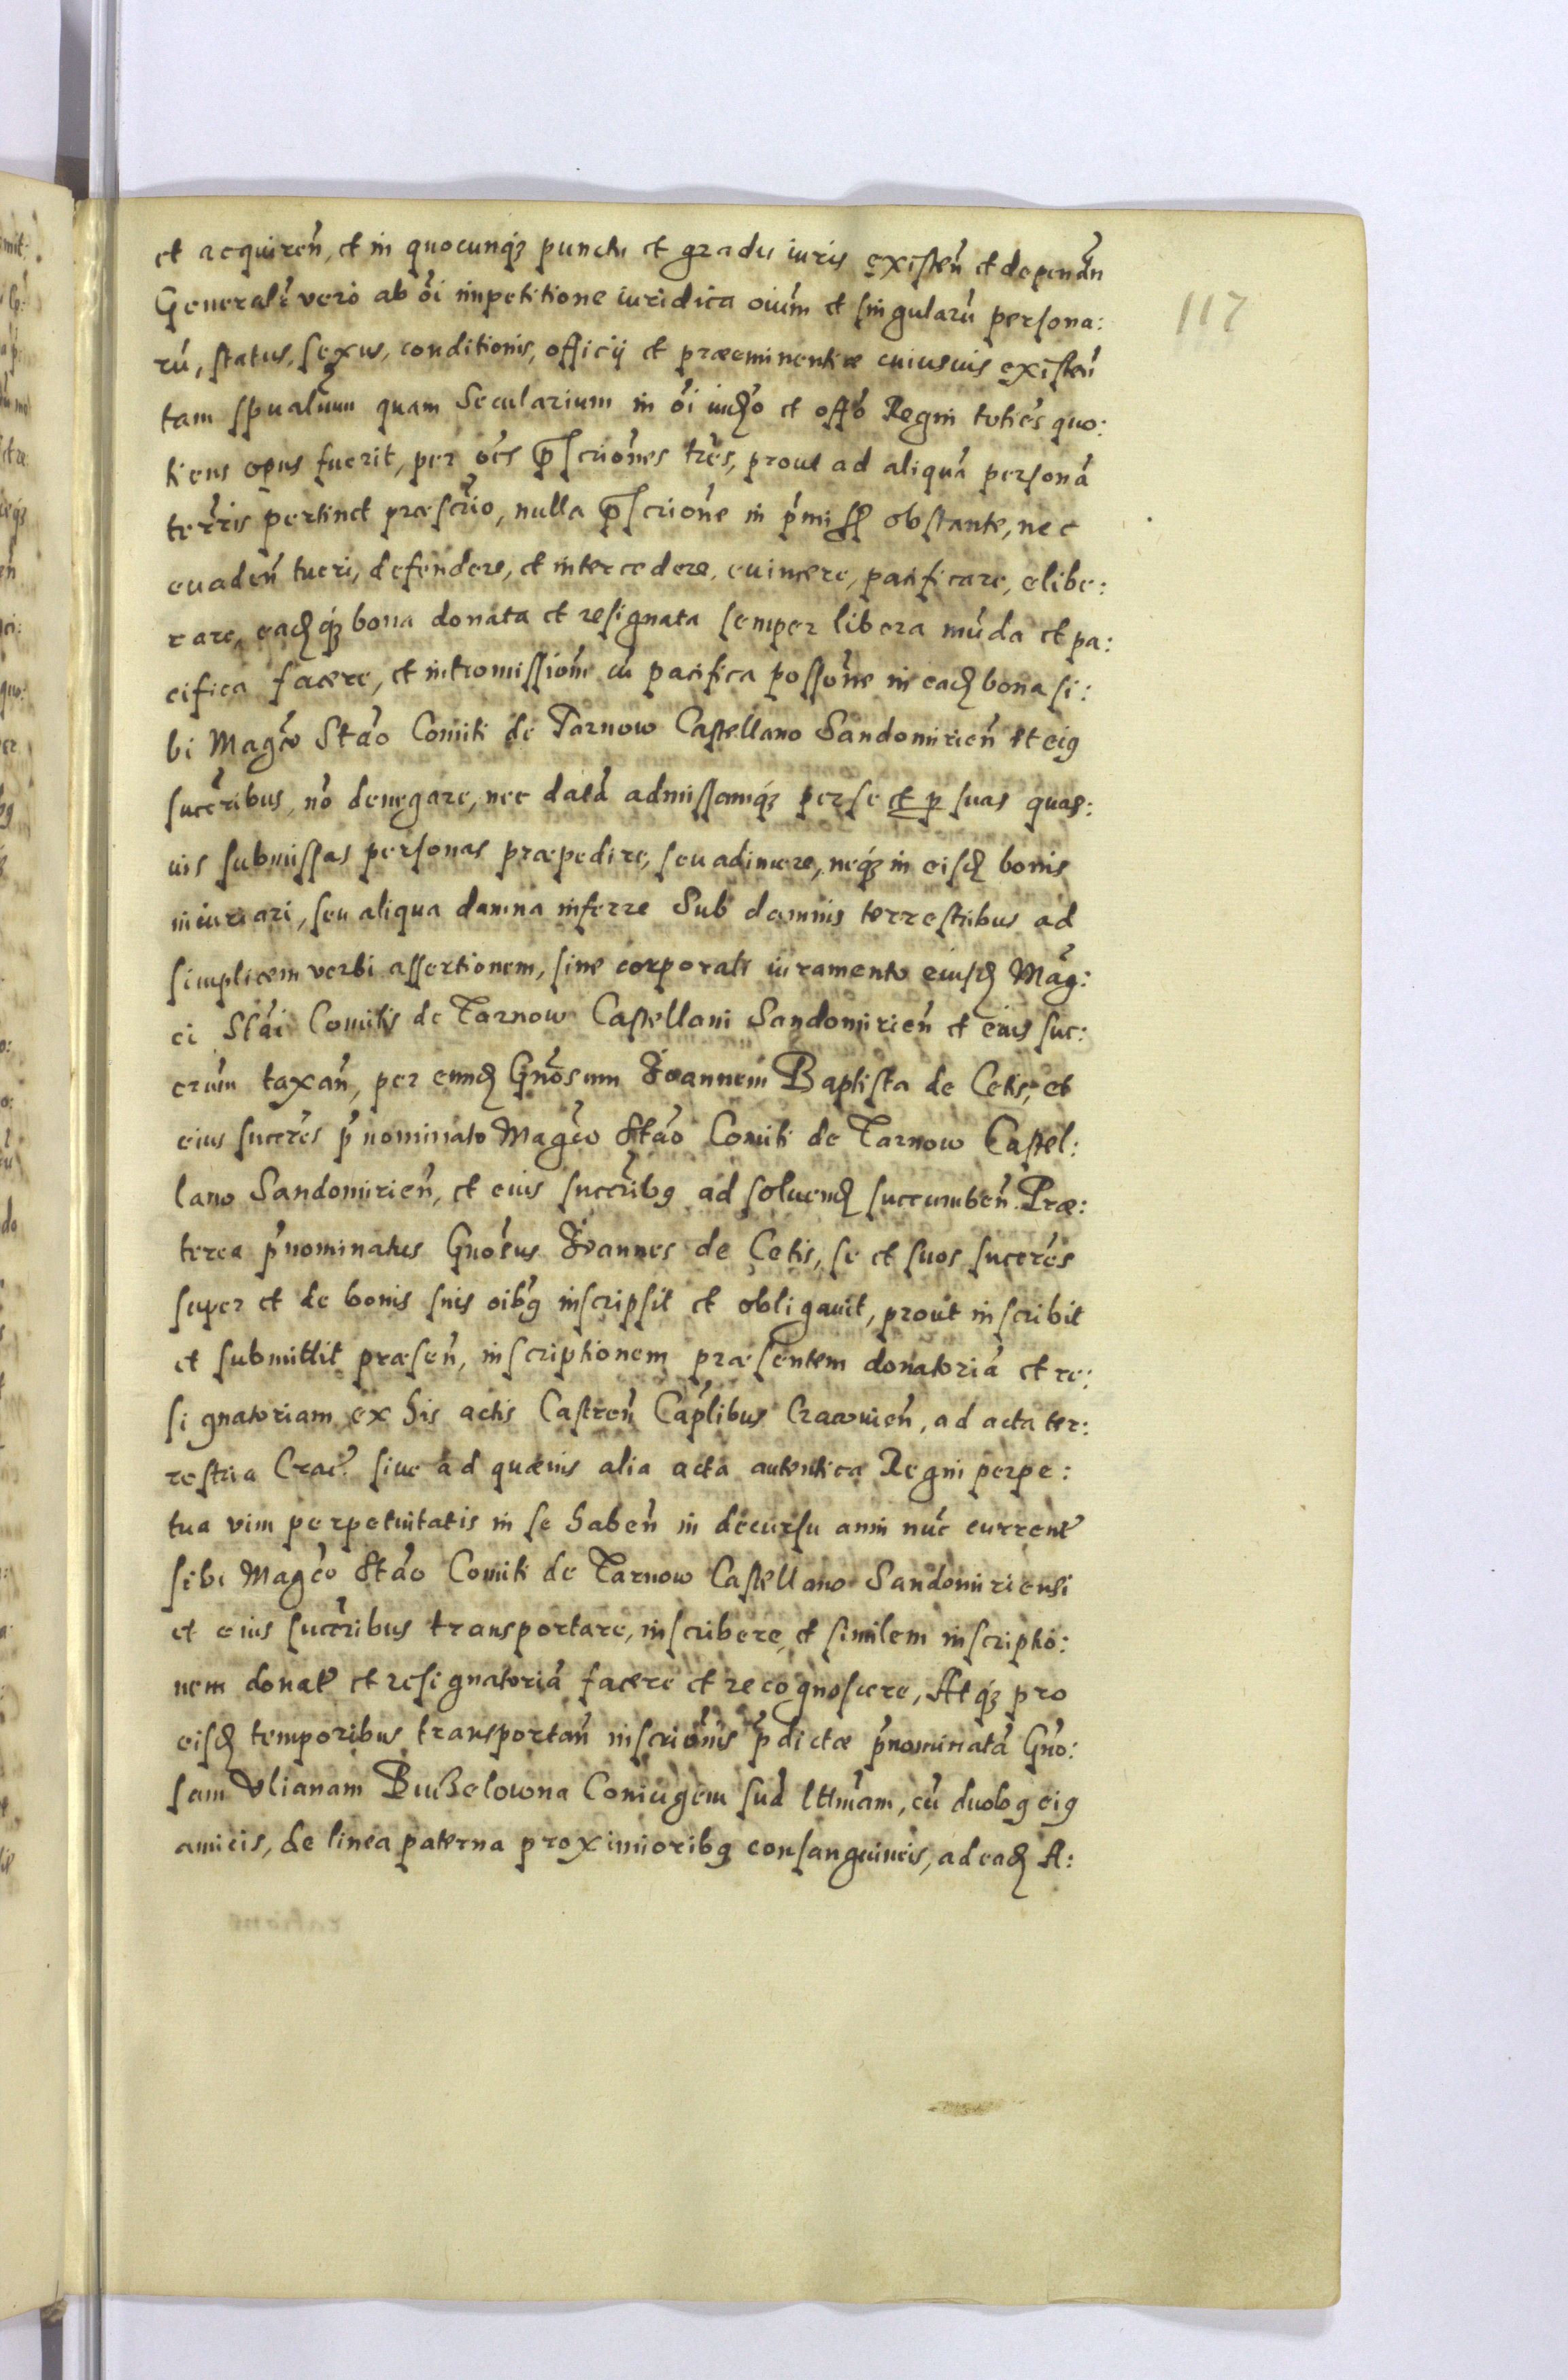 et acquireñ, et in quocunq₃ punctu et gradu iuris existeñ et dependeñ
Generalr̃ vero ab õi impetitione iuridica oiũm et singularũ persona:
rũ, status, sexus, conditionis, officij et præeminentiæ cuiusuis existeñ
tam spualium quam Secularium in õi iudº et offº Regni toties quo:
tiens opus fuerit, per oẽs p̃scriões trẽs, prout ad aliquã personã
terr̃is pertinet præscrĩo, nulla p̃scriõne in p̃miss obstante, nec
euadeñ tueri, defendere, et intercedere, euincere, pacificare, elibe:
rare, eadq₃ bona donata et resignata semper libera mũda et pa:
cifica facere, et intromissiõne cũ pacifica possõne in ead bona si:
bi Magcõ Stão Comiti de Tarnow Castellano Sandomirieñ et eiꝰ
succr̃ibus, nõ denegare, nec datã admissamq₃ per se et p suas quas:
uis submissas personas præpedire, seu adimere, neq₃ in eisd bonis
iniuriari, seu aliqua damna inferre Sub damnis terrestribus ad
simplicem verbi assertionem, sine corporali iuramento eiusd Mag:
ci Stãi Comitis de Tarnow Castellani Sandomirieñ et eius suc:
crũm taxañ, per eund Gñosum Joannem Baptista de Cetis, et
eius succr̃es p̃nominato Magcõ Stão Comiti de Tarnow Castel:
lano Sandomirieñ, et eius succr̃ibꝰ ad soluend succumbeñ. Præ:
terea p̃nominatus Gnõsus Joannes de Cetis, se et suos succr̃es
super et de bonis suis oĩbꝰ inscripsit et obligauit, prout inscribit
et submittit præseñ, inscriptionem præsentem donatoriã et re:
signatoriam ex his actis Castreñ Caplĩbus Cracouieñ, ad acta ter:
restria Crac̃. siue ad quæuis alia acta autentica Regni perpe:
tua vim perpetuitatis in se habeñ in decursu anni nũc current̃
sibi Magcõ Stão Comiti de Tarnow Castellano Sandomiriensi
et eius succr̃ibus transportare, inscribere, et similem inscriptio:
nem donat̃ et resignatoriã facere et recognoscere, Atq₃ pro
eisd temporibus transportañ inscriõnis p̃dictæ p̃nominatã Gño:
sam Vlianam Bużelowna Coniugem suã lttmãm, cũ duobꝰ eiꝰ
amicis, de linea paterna proximioribꝰ consanguineis, ad ead A:
117